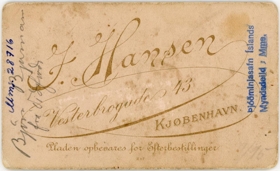 J. Hansen
Vesterbrogade 43.
KJØBENHAVN.
Pladen opbevares for Efterbestillinger
Þjóðminjasafn Íslands
Mms 28716
Bjarni